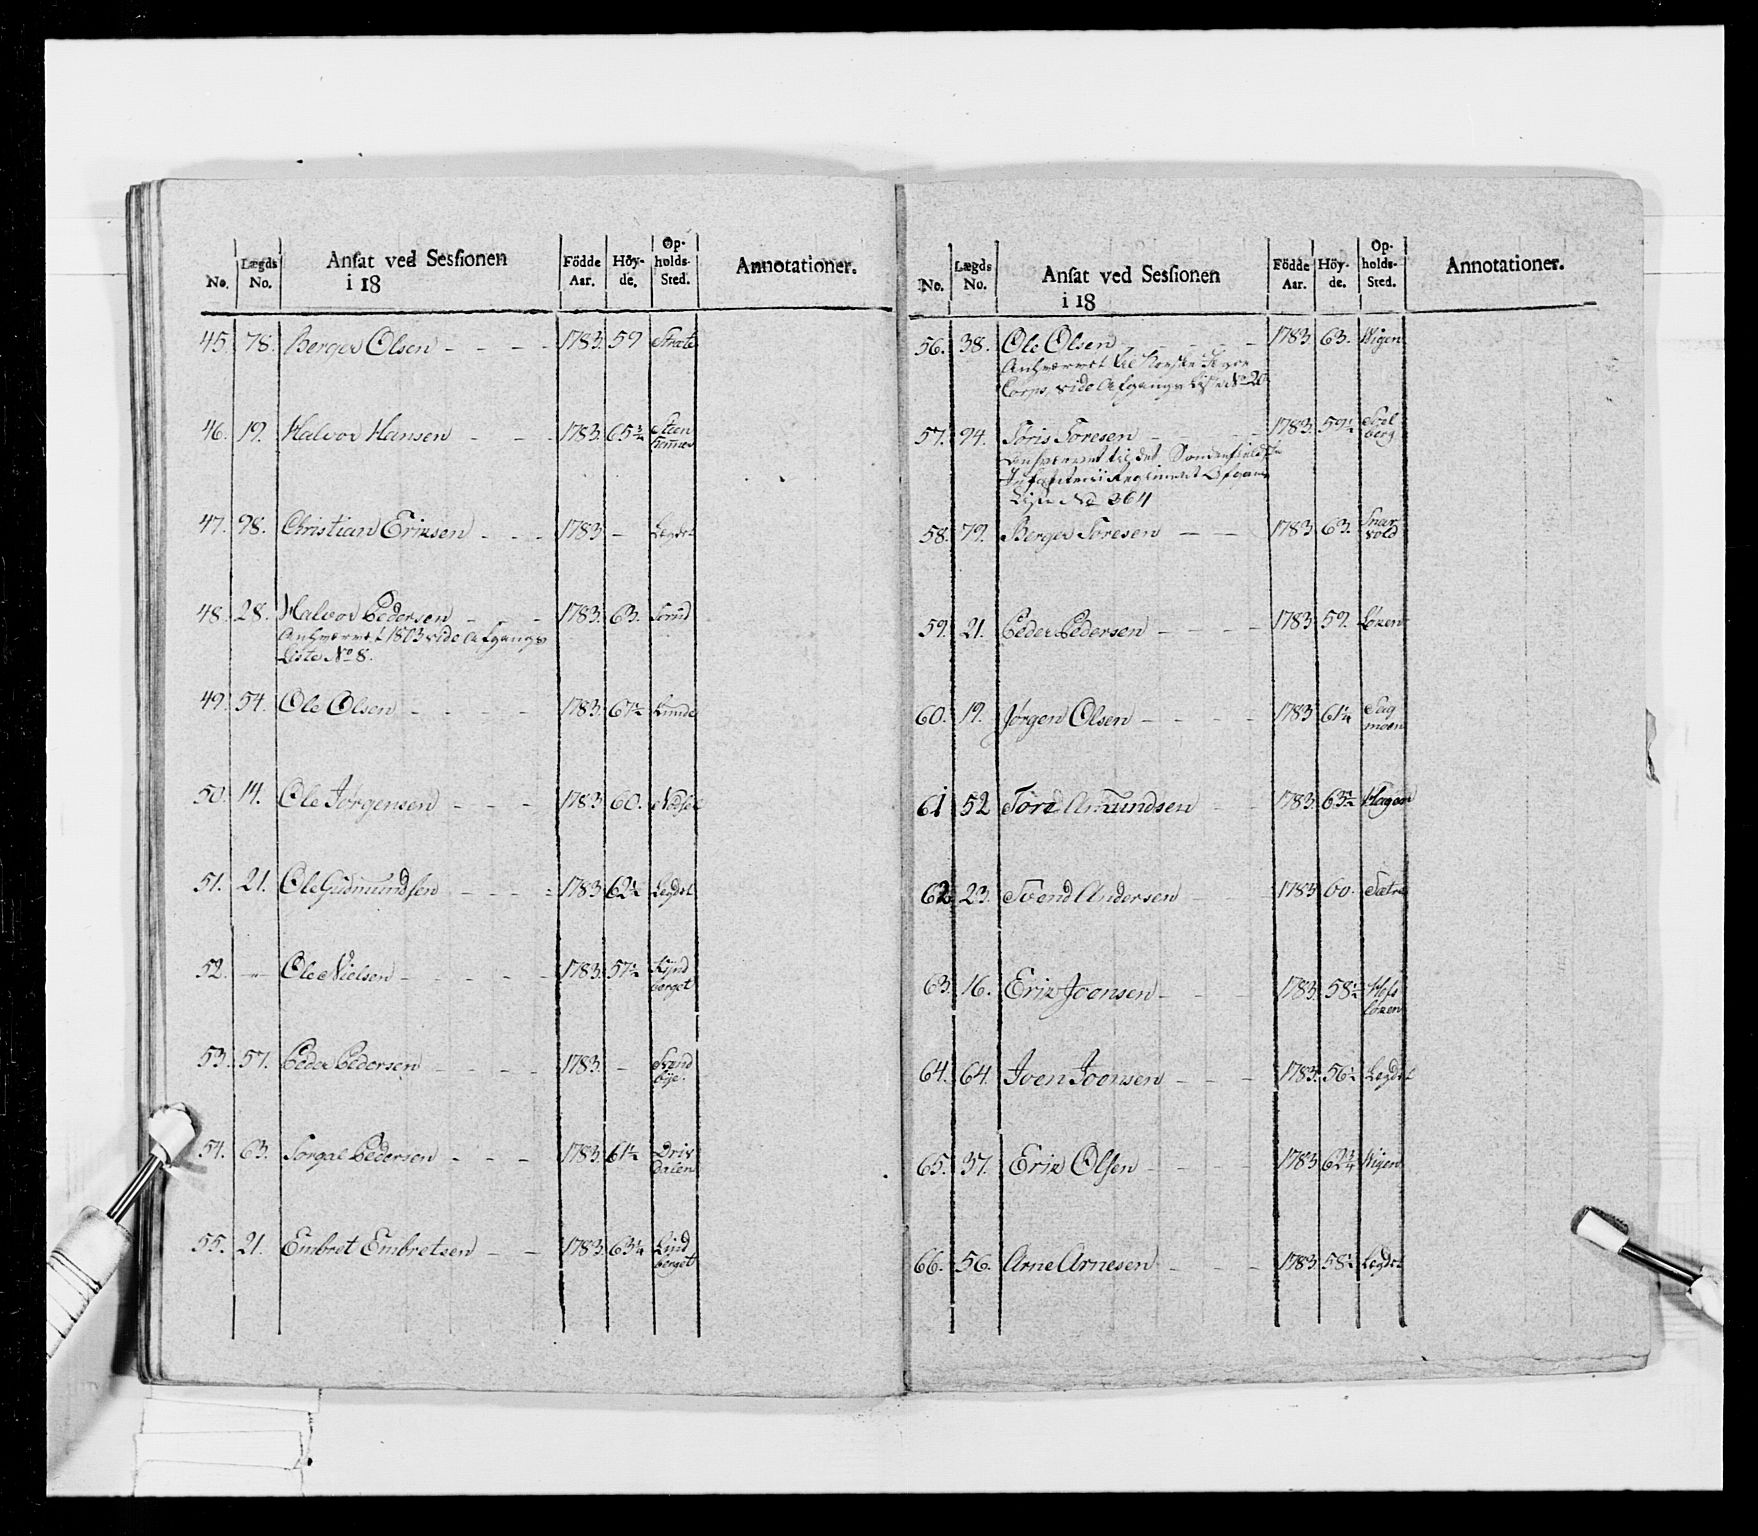 No. Lægds No. Ansat ved Sessionen i 18 Födde Aar. Höy- de. Op- holds- Sted. Annotationer.
45. 78. Berger Olsen - - - - 1783. 59
46. 19. Halvor Hansen - - - 1783. 65¾ Steen
47. 98. Christian Eriksen - - - 1783 - Legdet
48. 28. Halvor Pedersen - - - 1783. 63.
Anhværvet 1803 vide Afgangs
Liste No 8.
49. 54. Ole Olsen - - - - 1783. 61½ Lunde
50. 14. Ole Jörgensen - - - 1783 60.
51. 21. Ole Gudmundsen - - - 1783 62¼ Legdet
52. - Ole Nielsen - - - - 1783. 57½
berget
53. 57. Peder Pedersen - - - - 1783. -
54. 63. Torgal Pedersen - - - 1783. 61½
55. 21. Embret Embretsen - - 1783. 63¼ Lind
berget
No. Lægds No. Ansat ved Sessionen i 18 Födde Aar. Höy- de. Op- holds- Sted. Annotationer.
56. 38. Ole Olsen - - - - 1783 63. Wigen
Anhværvet til Norske Jæger
Corps, vide Afgangs Liste No
57. 94. Töris Töresen - - - 1783. 59½
berg
Anhværvet til det Söndenfieldske
Infanterii Regiment Afgang
Liste No 264
58. 79. Berger Töresen - - 1783 63. Snar
vold
59. 21. Peder Pedersen - - - 1783 59. Löken
60. 19. Jörgen Olsen - - - - 1783 61¼ Sag
moen
61 52 Töre Amundsen - - 1783. 63½ Hagen
62 23. Svend Andersen - - 1783 60. Sætre
63. 16. Erik Joensen - - - 1783. 58½ Hofs
löken
64. 64. Joen Joensen - - - 1783. 56½ Legdet
65. 37. Erik Olsen - - - - 1783 62¾ Wigen
66. 56. Arne Arnesen - - - 1783. 58½ Legdet